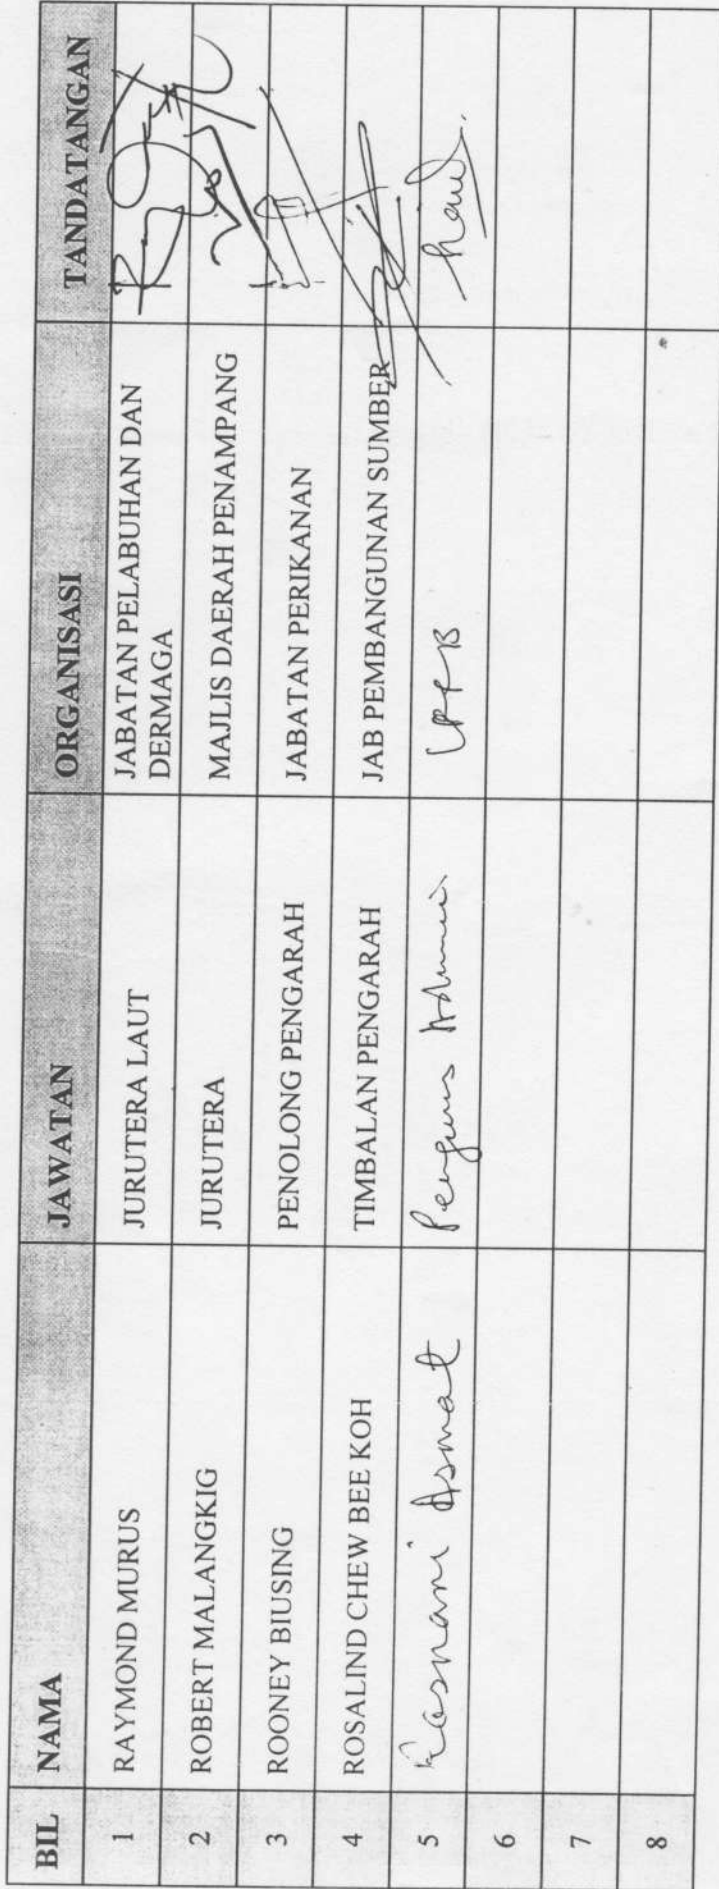 BIL NAMA JAWATAN ORGANISASI TANDATANGAN
1 RAYMOND MURUS JURUTERA LAUT JABATAN PELABUHAN DAN
DERMAGA
2 ROBERT MALANGKIG JURUTERA MAJLIS DAERAH PENAMPANG
3 ROONEY BIUSING PENOLONG PENGARAH JABATAN PERIKANAN
4 ROSALIND CHEW BEE KOH TIMBALAN PENGARAH JAB PEMBANGUNAN SUMBER
5 Rosnani Asmat Pengurus
6
7
8